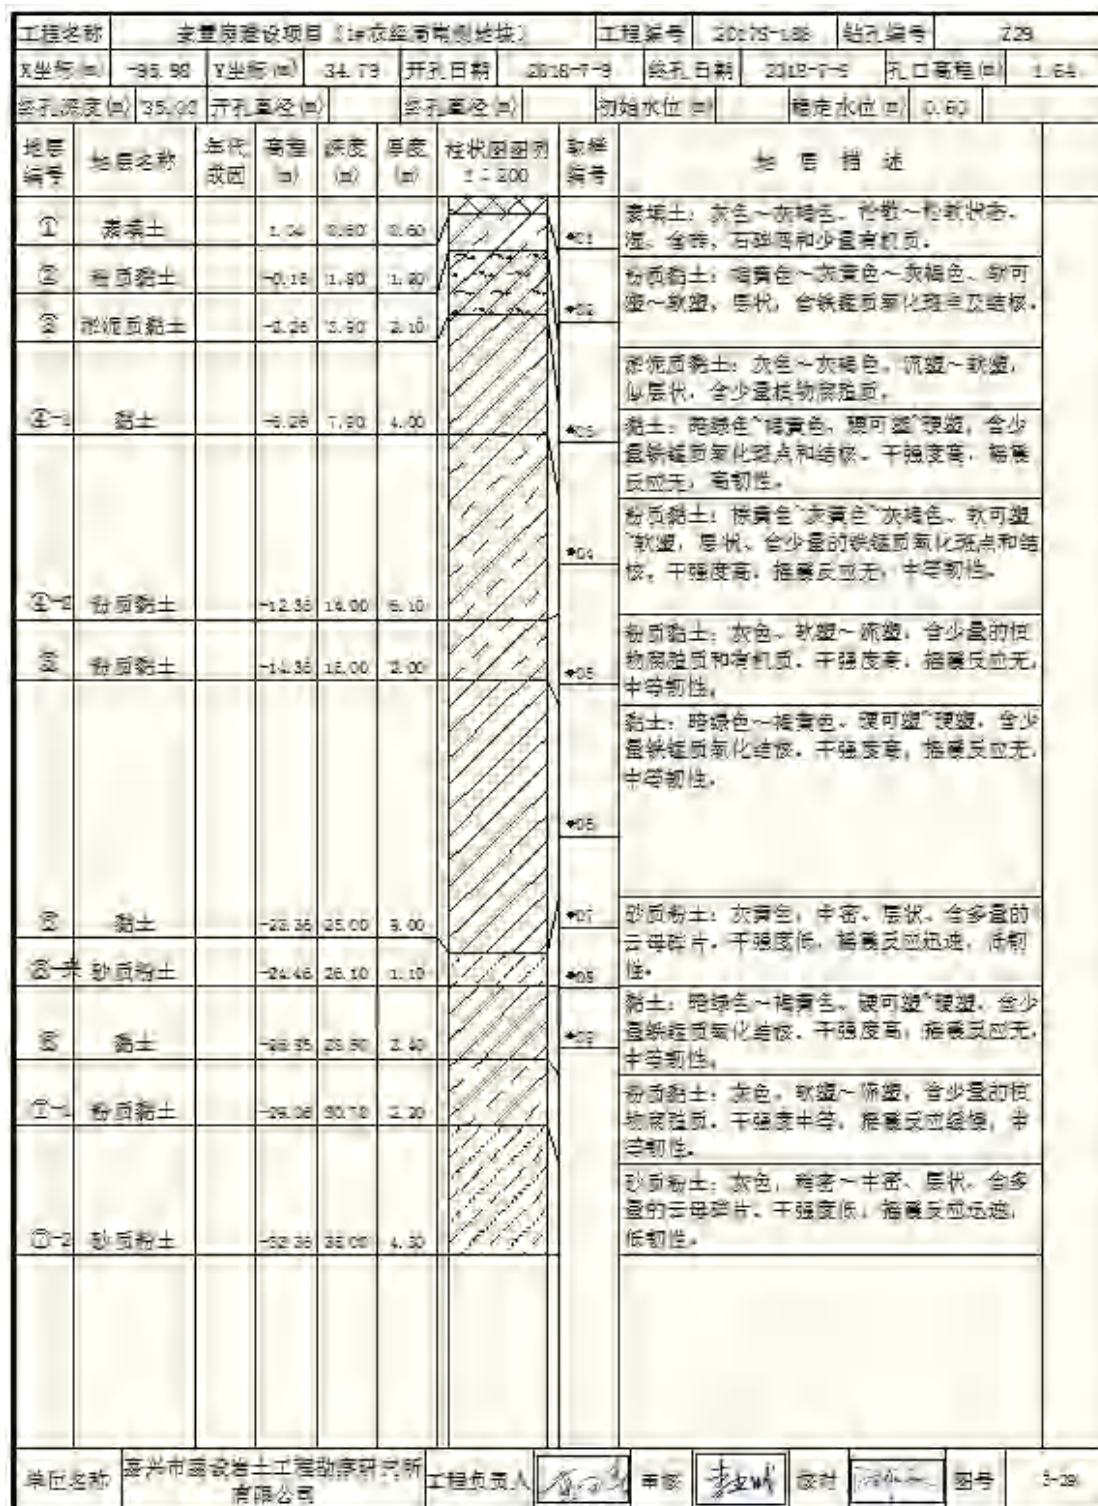 工程名称 安置房建设项目（1#农经局南侧地块） 工程编号 钻孔编号 Z29
X坐标(m) -95.98 Y坐标(m) 34.79 开孔日期 2018-7-9 终孔日期 2018-7-9 孔口高程(m) 1.64
终孔深度(m) 35.00 开孔直径(m) 终孔直径(m) 初始水位(m) 稳定水位(m) 0.60
地层编号 地层名称 年代成因 高程(m) 深度(m) 厚度(m) 柱状图图例 1:200 取样编号 地层描述
① 素填土 1.04 0.60 0.60 01
素填土：灰色～灰褐色、松散～松软状态、
湿、含砖、石碎屑和少量有机质。
② 粉质黏土 -0.16 1.80 1.20 02
粉质黏土：褐黄色～灰黄色～灰褐色、软可
塑～软塑，层状，含铁锰质氧化斑点及结核。
③ 淤泥质黏土 -2.26 3.90 2.10
淤泥质黏土：灰色～灰褐色、流塑～软塑，
似层状，含少量植物腐殖质。
④-1 黏土 -6.26 7.90 4.00 03
黏土：暗绿色~褐黄色、硬可塑~硬塑，含少
量铁锰质氧化斑点和结核。干强度高，摇震
反应无，高韧性。
粉质黏土：褐黄色~灰黄色~灰褐色、软可塑
~软塑，层状、含少量的铁锰质氧化斑点和结
核。干强度高，摇震反应无，中等韧性。
04
④-2 粉质黏土 -12.36 14.00 6.10
⑤ 粉质黏土 -14.36 16.00 2.00 05
粉质黏土：灰色、软塑～流塑，含少量的植
物腐殖质和有机质。干强度高，摇震反应无，
中等韧性。
黏土：暗绿色～褐黄色、硬可塑~硬塑，含少
量铁锰质氧化结核。干强度高，摇震反应无，
中等韧性。
06
⑥ 黏土 -23.36 25.00 9.00 07
砂质粉土：灰黄色，中密、层状、含多量的
云母碎片。干强度低，摇震反应迅速，低韧
性。
⑥-夹 砂质粉土 -24.46 26.10 1.10 08
⑥ 黏土 2.40 09
黏土：暗绿色～褐黄色、硬可塑~硬塑，含少
量铁锰质氧化结核。干强度高，摇震反应无，
中等韧性。
⑦-1 粉质黏土 -29.06 30.70 2.20
粉质黏土：灰色、软塑～流塑，含少量的植
物腐殖质。干强度中等，摇震反应缓慢，中
等韧性。
砂质粉土：灰色，稍密～中密、层状、含多
量的云母碎片。干强度低，摇震反应迅速，
低韧性。
⑦-2 砂质粉土 35.00 4.30
单位名称 嘉兴市建设岩土工程勘察研究所有限公司 工程负责人 审核 校对 图号 3-29